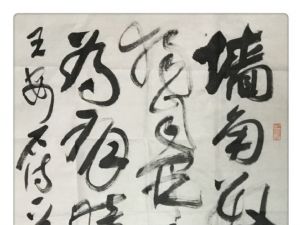 墙角数
独自开
為有暗
王安石诗